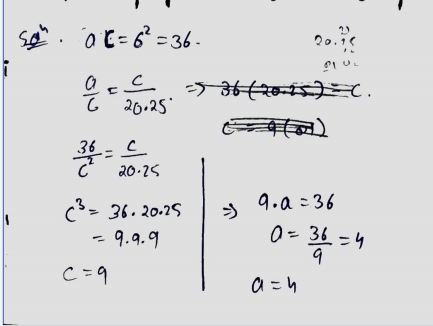 Solⁿ. a c = 6² = 36.
a/c = c/20.25 => 36(20.25) = c.
c = 9
36/c² = c/20.25
c³ = 36.20.25
= 9.9.9
c = 9
=> 9.a = 36
a = 36/9 = 4
a = 4
20.25